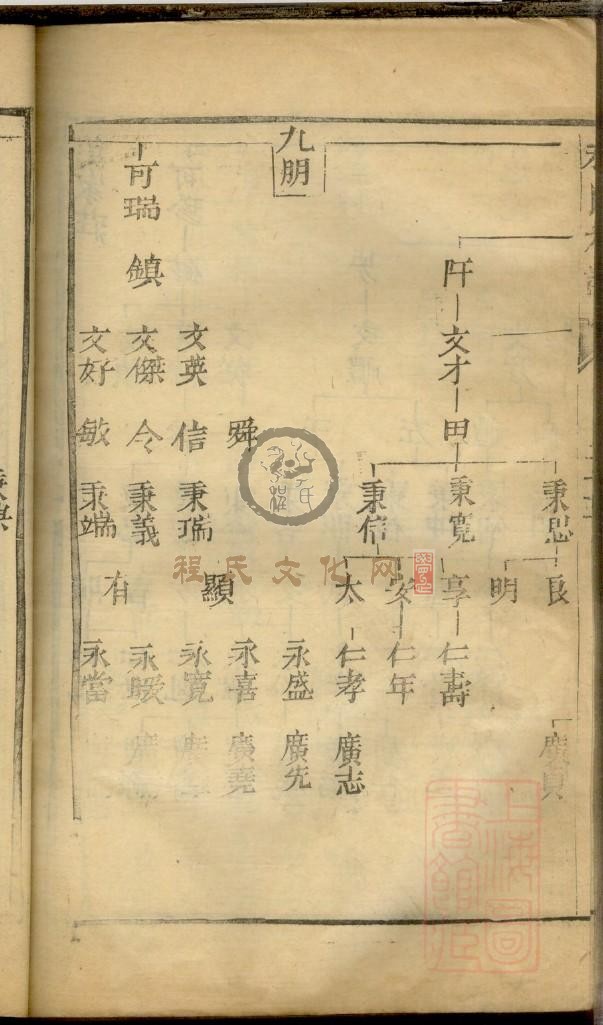 九朋
阡
文才
田
秉忠
秉寬
秉信
良
明
享
安
太
仁壽
仁年
仁孝
廣志
可瑞
鎮
文英
文傑
文好
舜
信
令
敏
秉瑞
秉義
秉端
顯
有
永盛
永喜
永寬
永暖
永當
廣先
廣堯
程氏文化网
程氏
上海圖書館藏